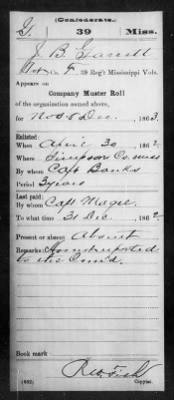 (Confederate.)
G. 39 Miss.
J. B. Garrett
Co. F, 39 Reg't Mississippi Vols.
Appears on
Company Muster Roll
of the organization named above,
for Nov & Dec, 1863.
Enlisted:
When April 30, 1862
Where Simpson Co. Miss
By whom Capt Banks
Period 3 years
Last paid:
By whom Capt Magee
To what time 31 Dec, 1862
Present or absent Absent
Remarks: Has not reported
to the Com'd.
Book mark:
(642) Copyist.